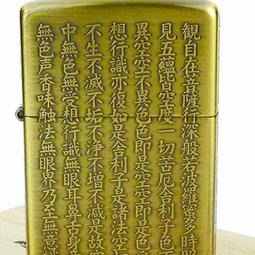 観自在菩薩行深般若波羅蜜多時照
見五蘊皆空度一切苦厄舎利子色
異空空不異色色即是空空即是色
想行識亦復如是舎利子是諸法空
不生不滅不垢不浄不増不減是故
中無色無受想行識無眼耳鼻舌身
無色声香味触法無眼界乃至無意識